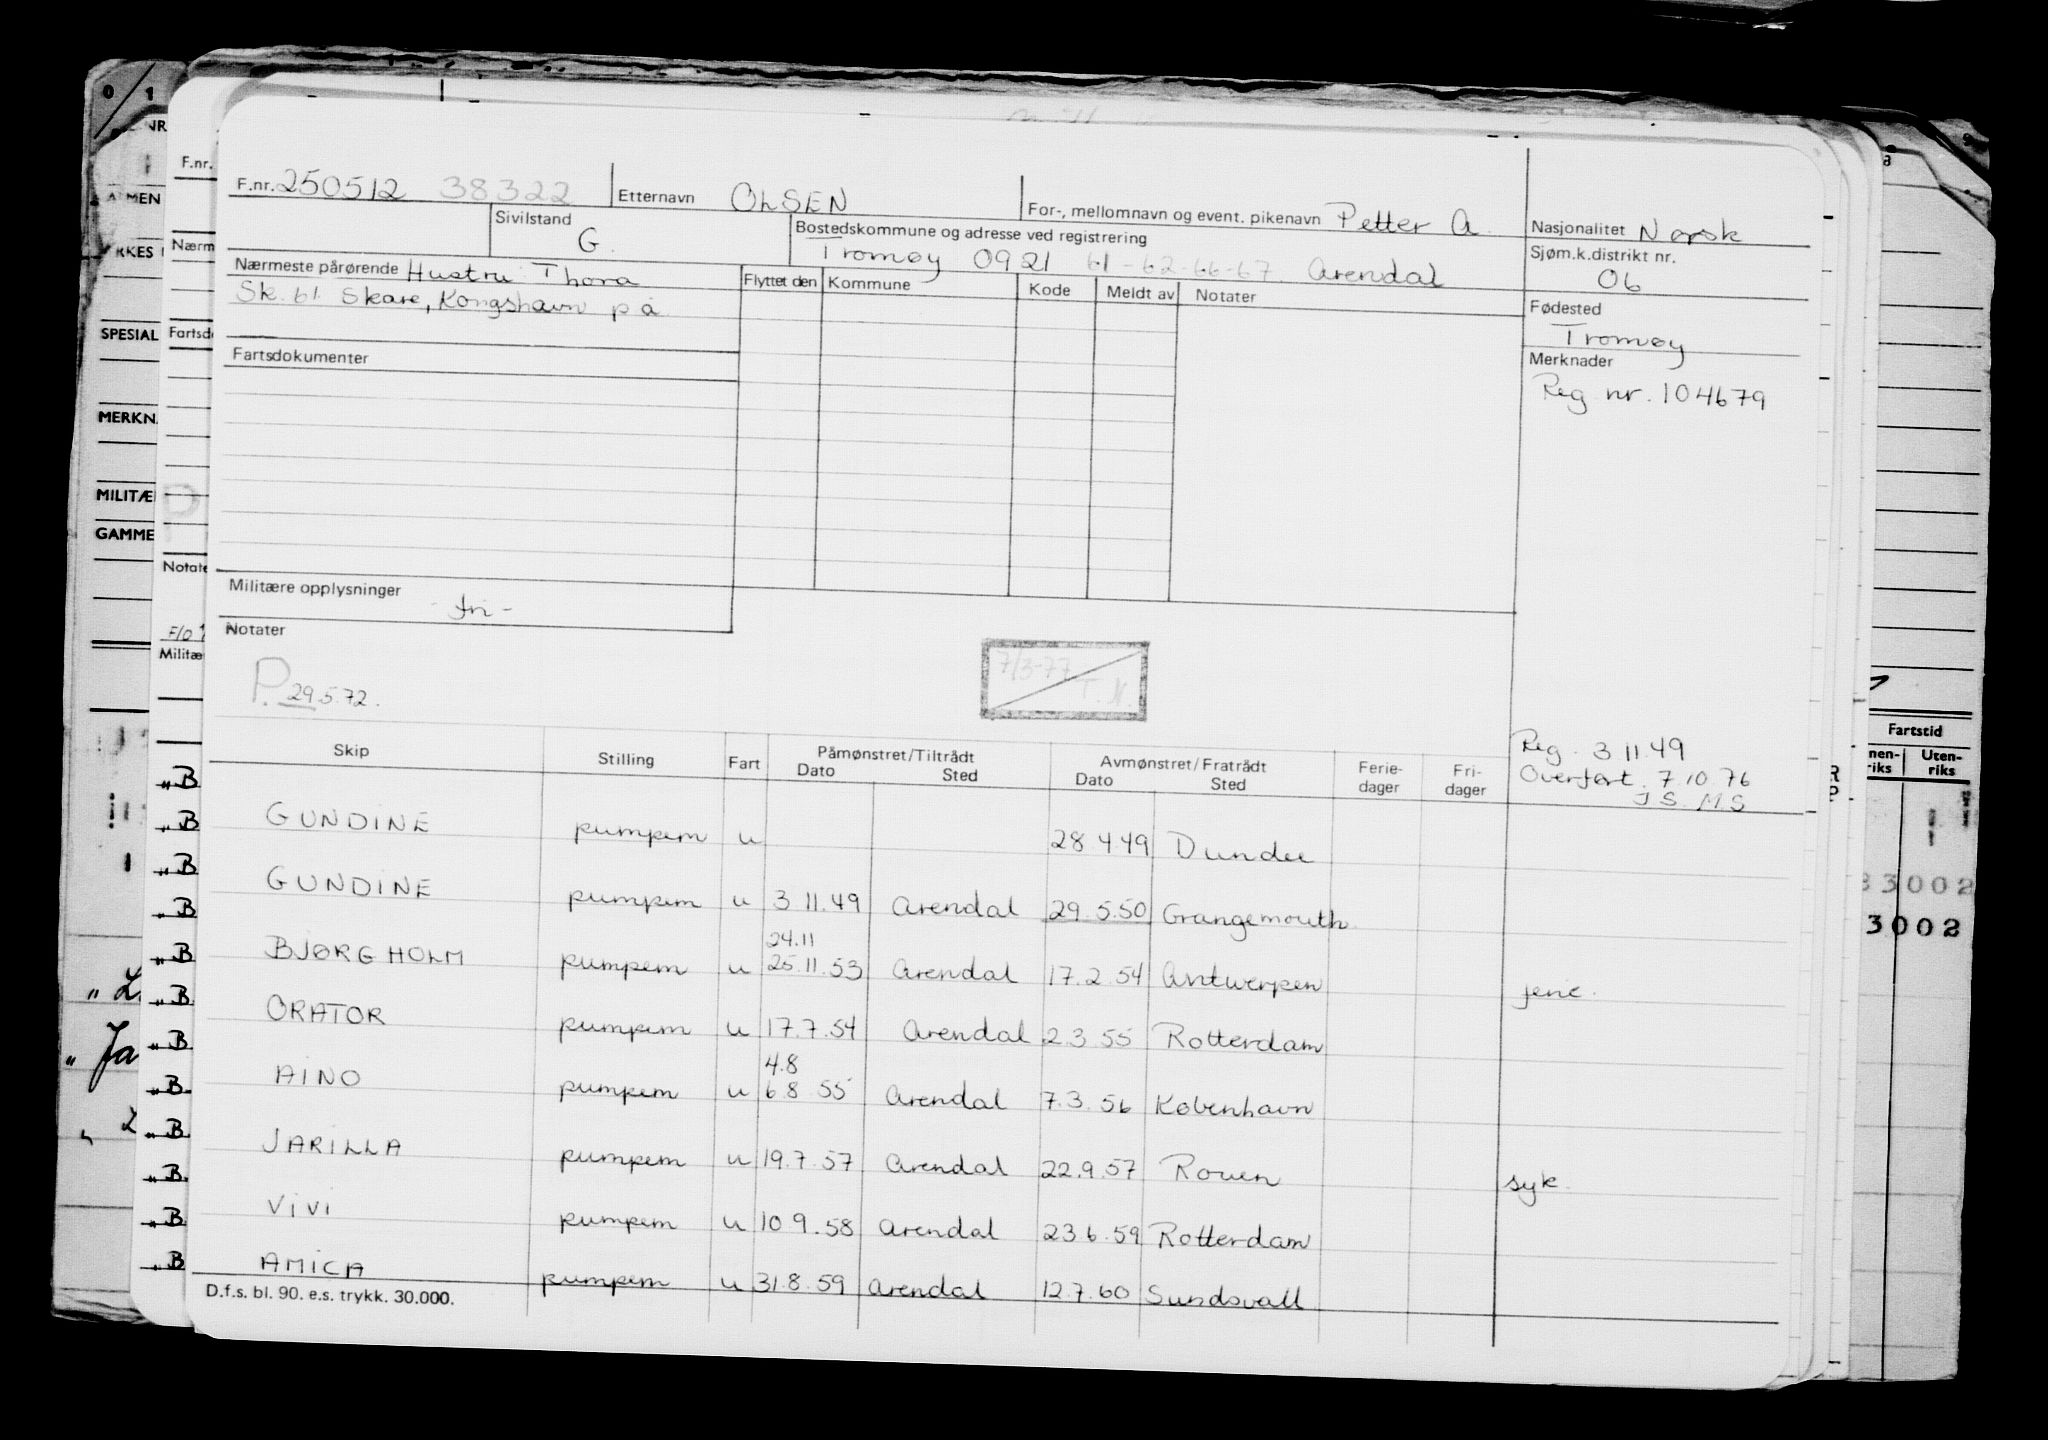 F.nr. 250512 38322 Etternavn OLSEN For-, mellomnavn og event. pikenavn Petter A. Nasjonalitet Norsk
Sivilstand G. Bostedskommune og adresse ved registrering Sjøm.k.distrikt nr. 06
Tromøy 0921 61-62-66-67. Arendal
Nærmeste pårørende Hustru: Thora Flyttet den Kommune Kode Meldt av Notater Fødested
Sk. 61. Skare, Kongshavn på Tromøy
Fartsdokumenter Merknader
Reg nr. 104679
Militære opplysninger - fri -
Notater
P. 29.5.72.
7/3-77
T. M.
Reg. 3 11.49
Overført. 7.10.76
J S. M.S
Skip Stilling Fart Påmønstret/Tiltrådt Avmønstret/Fratrådt Ferie- Fri-
Dato Sted Dato Sted dager dager
GUNDINE pumpem u 28 4 49 Dundee
GUNDINE pumpem u 3 11.49 Arendal 29.5.50 Grangemouth
24.11
BJØRGHOLM pumpem u 25.11.53 Arendal 17.2.54 Antwerpen
ORATOR pumpem u 17.7.54 Arendal 2.3.55 Rotterdam
4.8
AINO pumpem u 6.8.55 Arendal 7.3.56 København
JARILLA pumpem u 19.7.57 Arendal 22.9.57 Rouen syk.
VIVI pumpem u 10 9.58 Arendal 23 6.59 Rotterdam
AMICA pumpem u 31.8.59 Arendal 12.7.60 Sundsvall
D.f.s. bl. 90. e.s. trykk. 30.000.
0/1
F.nr.
Nærm
SPESIAL
MERKN
MILITÆ
GAMME
Fartstid
Uten-
riks
33002
3002